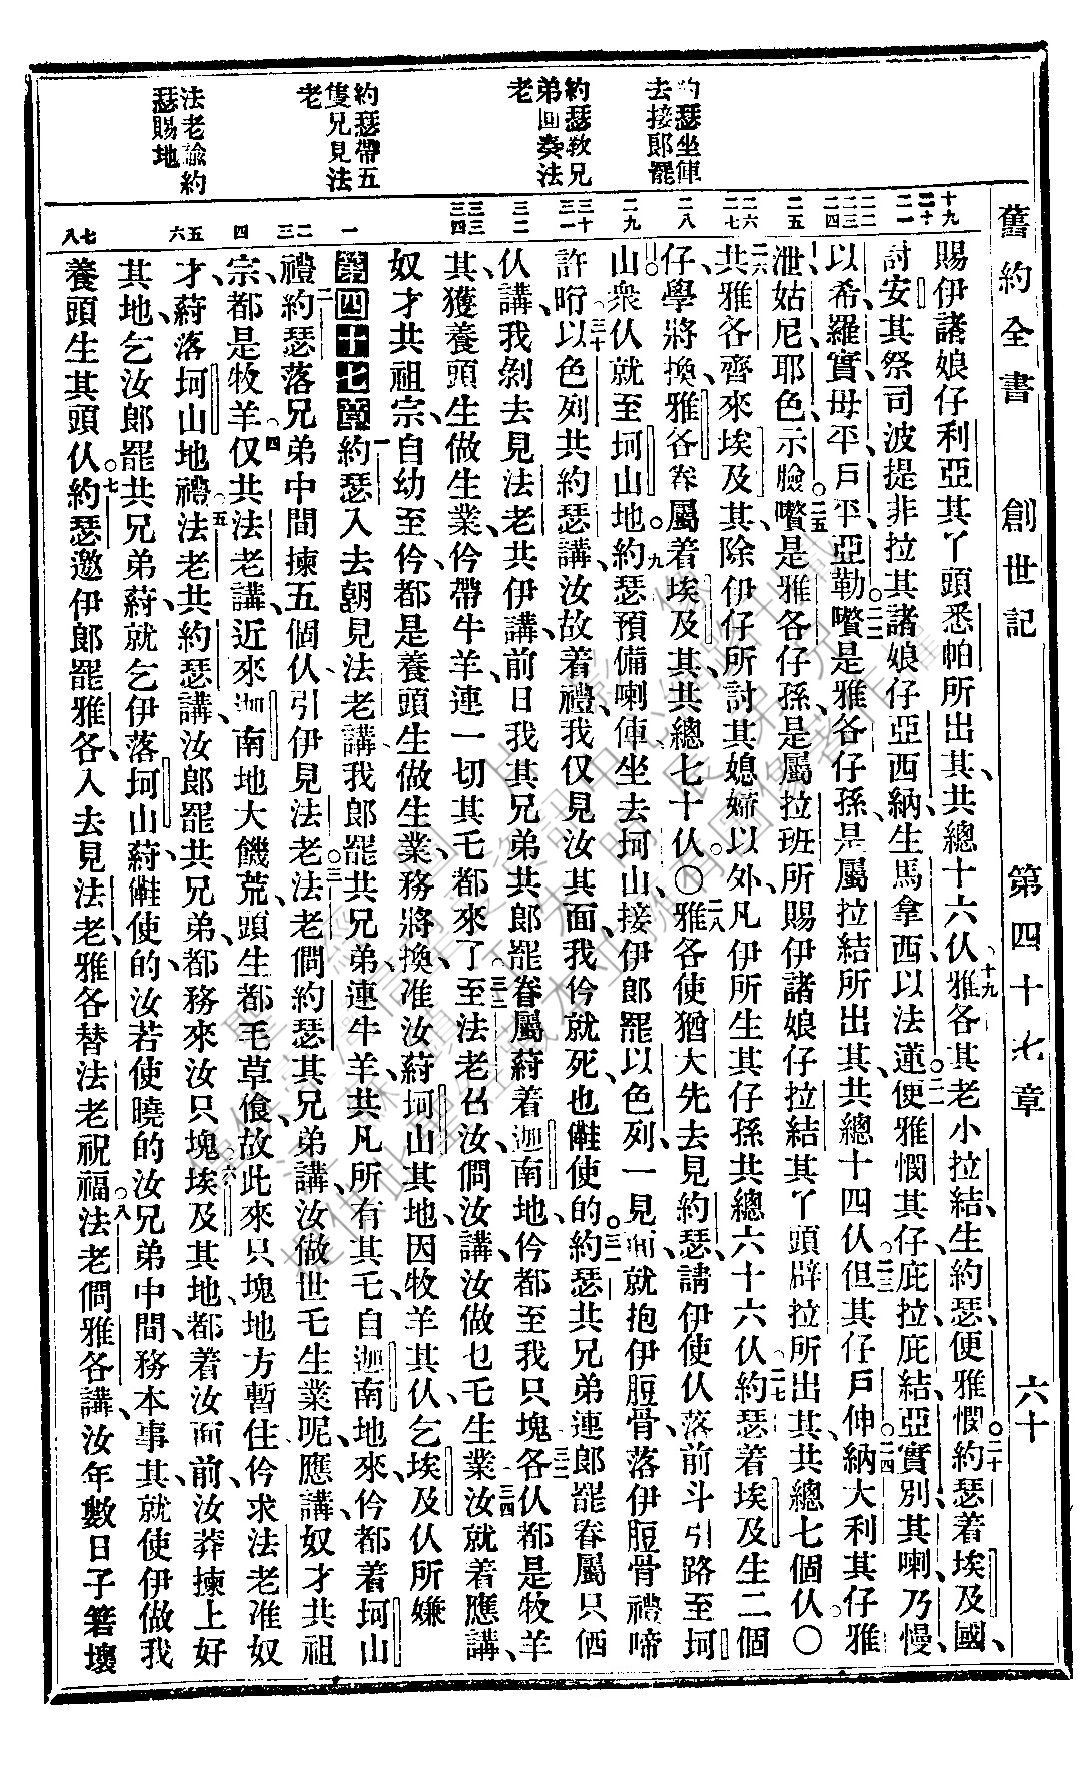 舊約全書 創世記 第四十七章 六十
約瑟坐俥
去接郎罷
約瑟教兄
弟回奏法
老
約瑟帶五
隻兄見法
老
法老諭約
瑟賜地
十九
二十
二一
二二
二三
二四
二五
二六
二七
二八
二九
三十
三一
三二
三三
三四
一
二
三
四
五
六
七
八
賜伊諸娘仔利亞其丫頭悉帕所出其、共總十六仈、十九雅各其老小拉結、生約瑟、便雅憫、二十約瑟着埃及國、
討安其祭司波提非拉其諸娘仔亞西納、生馬拿西、以法蓮。二一便雅憫其仔、庇拉、庇結、亞實別、其喇、乃慢、
以希、羅實、毋平、戶平、亞勒。二二嚽是雅各仔孫、是屬拉結所出其、共總十四仈。二三但其仔戶伸。二四納大利其仔雅
泄、姑尼、耶色、示臉。二五嚽是雅各仔孫、是屬拉班所賜伊諸娘仔拉結其丫頭辟拉所出其、共總七個仈〇
二六共雅各齊來埃及其、除伊仔所討其媳婦以外、凡伊所生其仔孫共總六十六仈、二七約瑟着埃及生二個
仔、學將換、雅各眷屬着埃及其、共總七十仈。〇二八雅各使猶大先去見約瑟、請伊使仈落前斗引路至坷
山。衆仈就至坷山地。二九約瑟預備喇俥、坐去坷山、接伊郎罷以色列、一見面、就抱伊脰骨、落伊脰骨禮啼
許晌。三十以色列共約瑟講、汝故着禮、我仅見汝其面、我仱就死、也𣍐使的。三一約瑟共兄弟連郎罷眷屬只倆
仈講、我剝去見法老、共伊講、前日我其兄弟共郎罷眷屬蒔着迦南地、仱都至我只塊、三二各仈都是牧羊、
其、獲養頭生做生業、仱帶牛羊連一切其乇都來了。三三至法老召汝儕、汝講、汝做乜乇生業、三四汝就着應講、
奴才共祖宗、自幼至仱都是養頭生做生業、務將換、准汝蒔坷山其地、因牧羊其仈、乞埃及仈所嫌
第四十七章 一約瑟入去朝見法老、講、我郎罷共兄弟、連牛羊、共凡所有其乇、自迦南地來、仱都着坷山
禮。二約瑟落兄弟中間揀五個仈、引伊見法老。三法老儕約瑟其兄弟講、汝做世乇生業呢、應講、奴才共祖
宗、都是牧羊。四仅共法老講、近來迦南地大饑荒、頭生都毛草飡、故此來只塊地方暫住、仱求法老准奴
才、蒔落坷山地禮。五法老共約瑟講、汝郎罷共兄弟、都務來汝只塊、六埃及其地、都着汝面前、汝莽揀上好
其地、乞汝郎罷共兄弟蒔、就乞伊落坷山蒔、𣍐使的、汝若使曉的汝兄弟中間、務本事其、就使伊做我
養頭生其頭仈。七約瑟邀伊郎罷雅各、入去見法老、雅各替法老祝福。八法老儕雅各講、汝年數日子箬壞